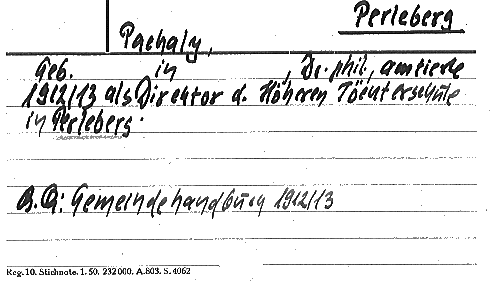 Perleberg
Pachaly,
Geb. in , Dr. phil., amtierte
1912/13 als Direktor d. Höheren Töchterschule
in Perleberg.
A.Q: Gemeindehandbuch 1912/13
Reg. 10. Stichnote. 1. 50. 232000. A.803. S. 4062